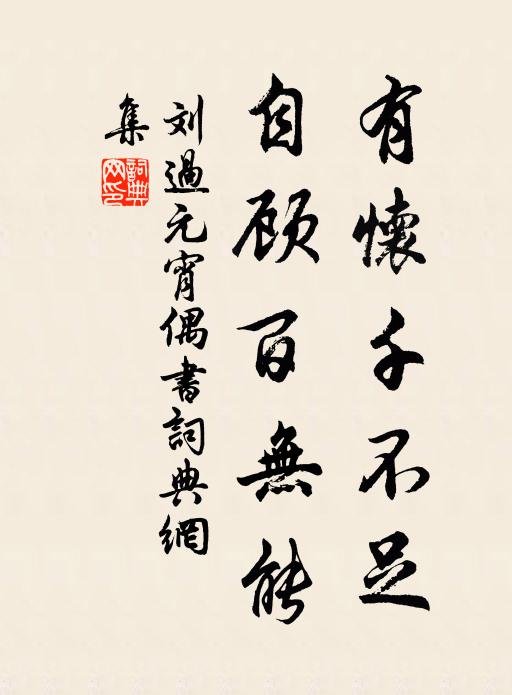 有懷千不足
自顾百無能
刘過元宵偶書詞典網
集
詞典網印